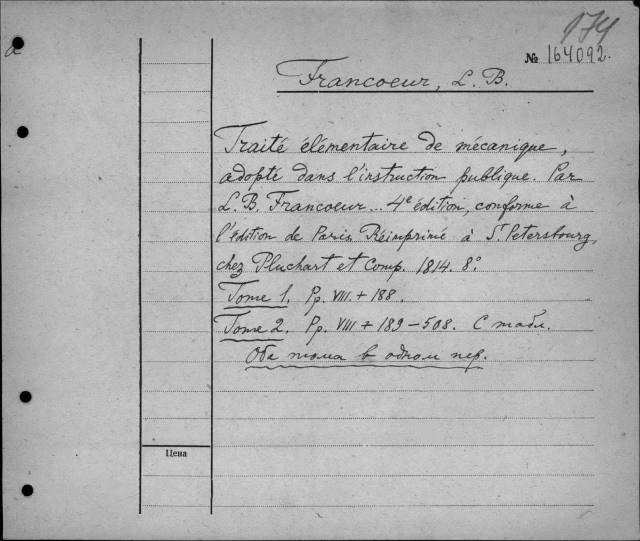 174
№ 164092.
Francoeur, L. B.
Traité élémentaire de mécanique,
adopté dans l'instruction publique. Par
L. B. Francoeur... 4e édition, conforme à
l'édition de Paris, Réimprimé à St Petersbourg,
chez Pluchart et Comp. 1814. 8°
Tome 1. Pp. VIII. + 188.
Tome 2. Pp. VIII + 189 — 508. С табл.
Оба тома в одном пер.
Цена